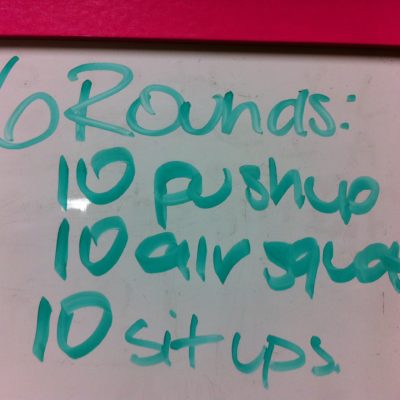 6 Rounds:
10 pushup
10 air squa
10 sit ups.